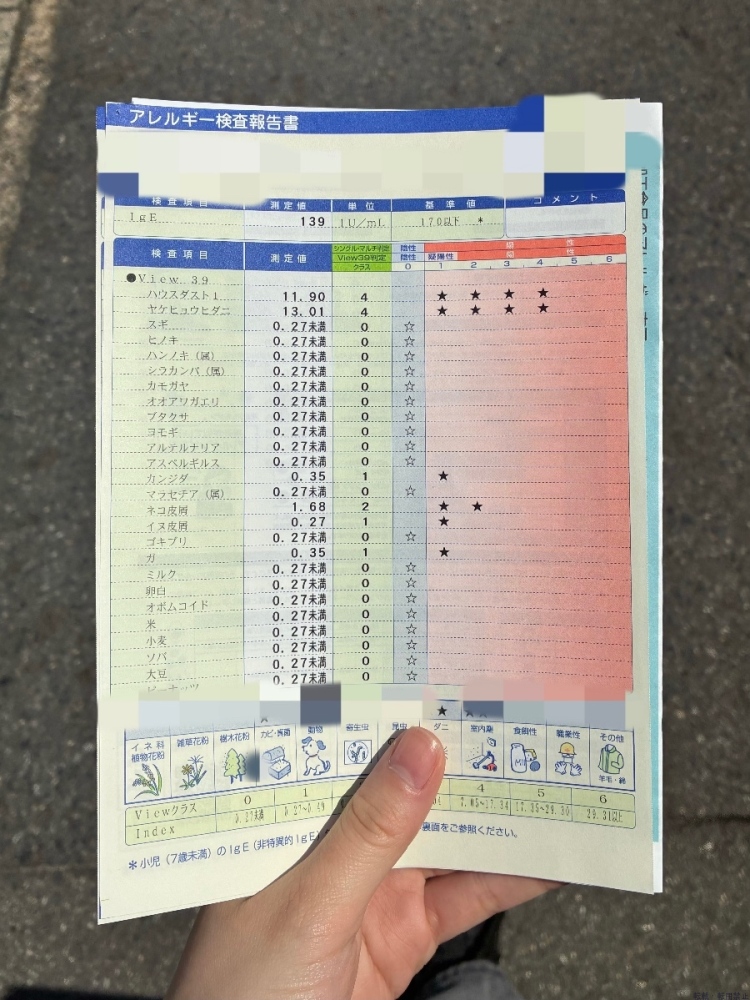 アレルギー検査報告書
検査項目 測定値 単位 基準値 コメント
IgE 139 IU/mL 170以下 *
検査項目 測定値 シングル・マルチ判定 陰性 陽性
View39判定 陰性 疑陽性 陽性
クラス 0 1 2 3 4 5 6
●View 39
ハウスダスト1 11.90 4 ★ ★ ★ ★
ヤケヒョウヒダニ 13.01 4 ★ ★ ★ ★
スギ 0.27未満 0 ☆
ヒノキ 0.27未満 0 ☆
ハンノキ(属) 0.27未満 0 ☆
シラカンバ(属) 0.27未満 0 ☆
カモガヤ 0.27未満 0 ☆
オオアワガエリ 0.27未満 0 ☆
ブタクサ 0.27未満 0 ☆
ヨモギ 0.27未満 0 ☆
アルテルナリア 0.27未満 0 ☆
アスペルギルス 0.27未満 0 ☆
カンジダ 0.35 1 ★
マラセチア(属) 0.27未満 0 ☆
ネコ皮屑 1.68 2 ★ ★
イヌ皮屑 0.27 1 ★
ゴキブリ 0.27未満 0 ☆
ガ 0.35 1 ★
ミルク 0.27未満 0 ☆
卵白 0.27未満 0 ☆
オボムコイド 0.27未満 0 ☆
米 0.27未満 0 ☆
小麦 0.27未満 0 ☆
ソバ 0.27未満 0 ☆
大豆 0.27未満 0 ☆
ピーナッツ
★
イネ科植物花粉 雑草花粉 樹木花粉 カビ・真菌 動物 寄生虫 昆虫 ダニ 室内塵 食餌性 職業性 その他
羊毛・綿
Viewクラス 0 1 4 5 6
Index 0.27未満 0.27~0.49 7.05~17.34 17.35~29.30 29.31以上
*小児(7歳未満)のIgE(非特異的IgE) 裏面をご参照ください。